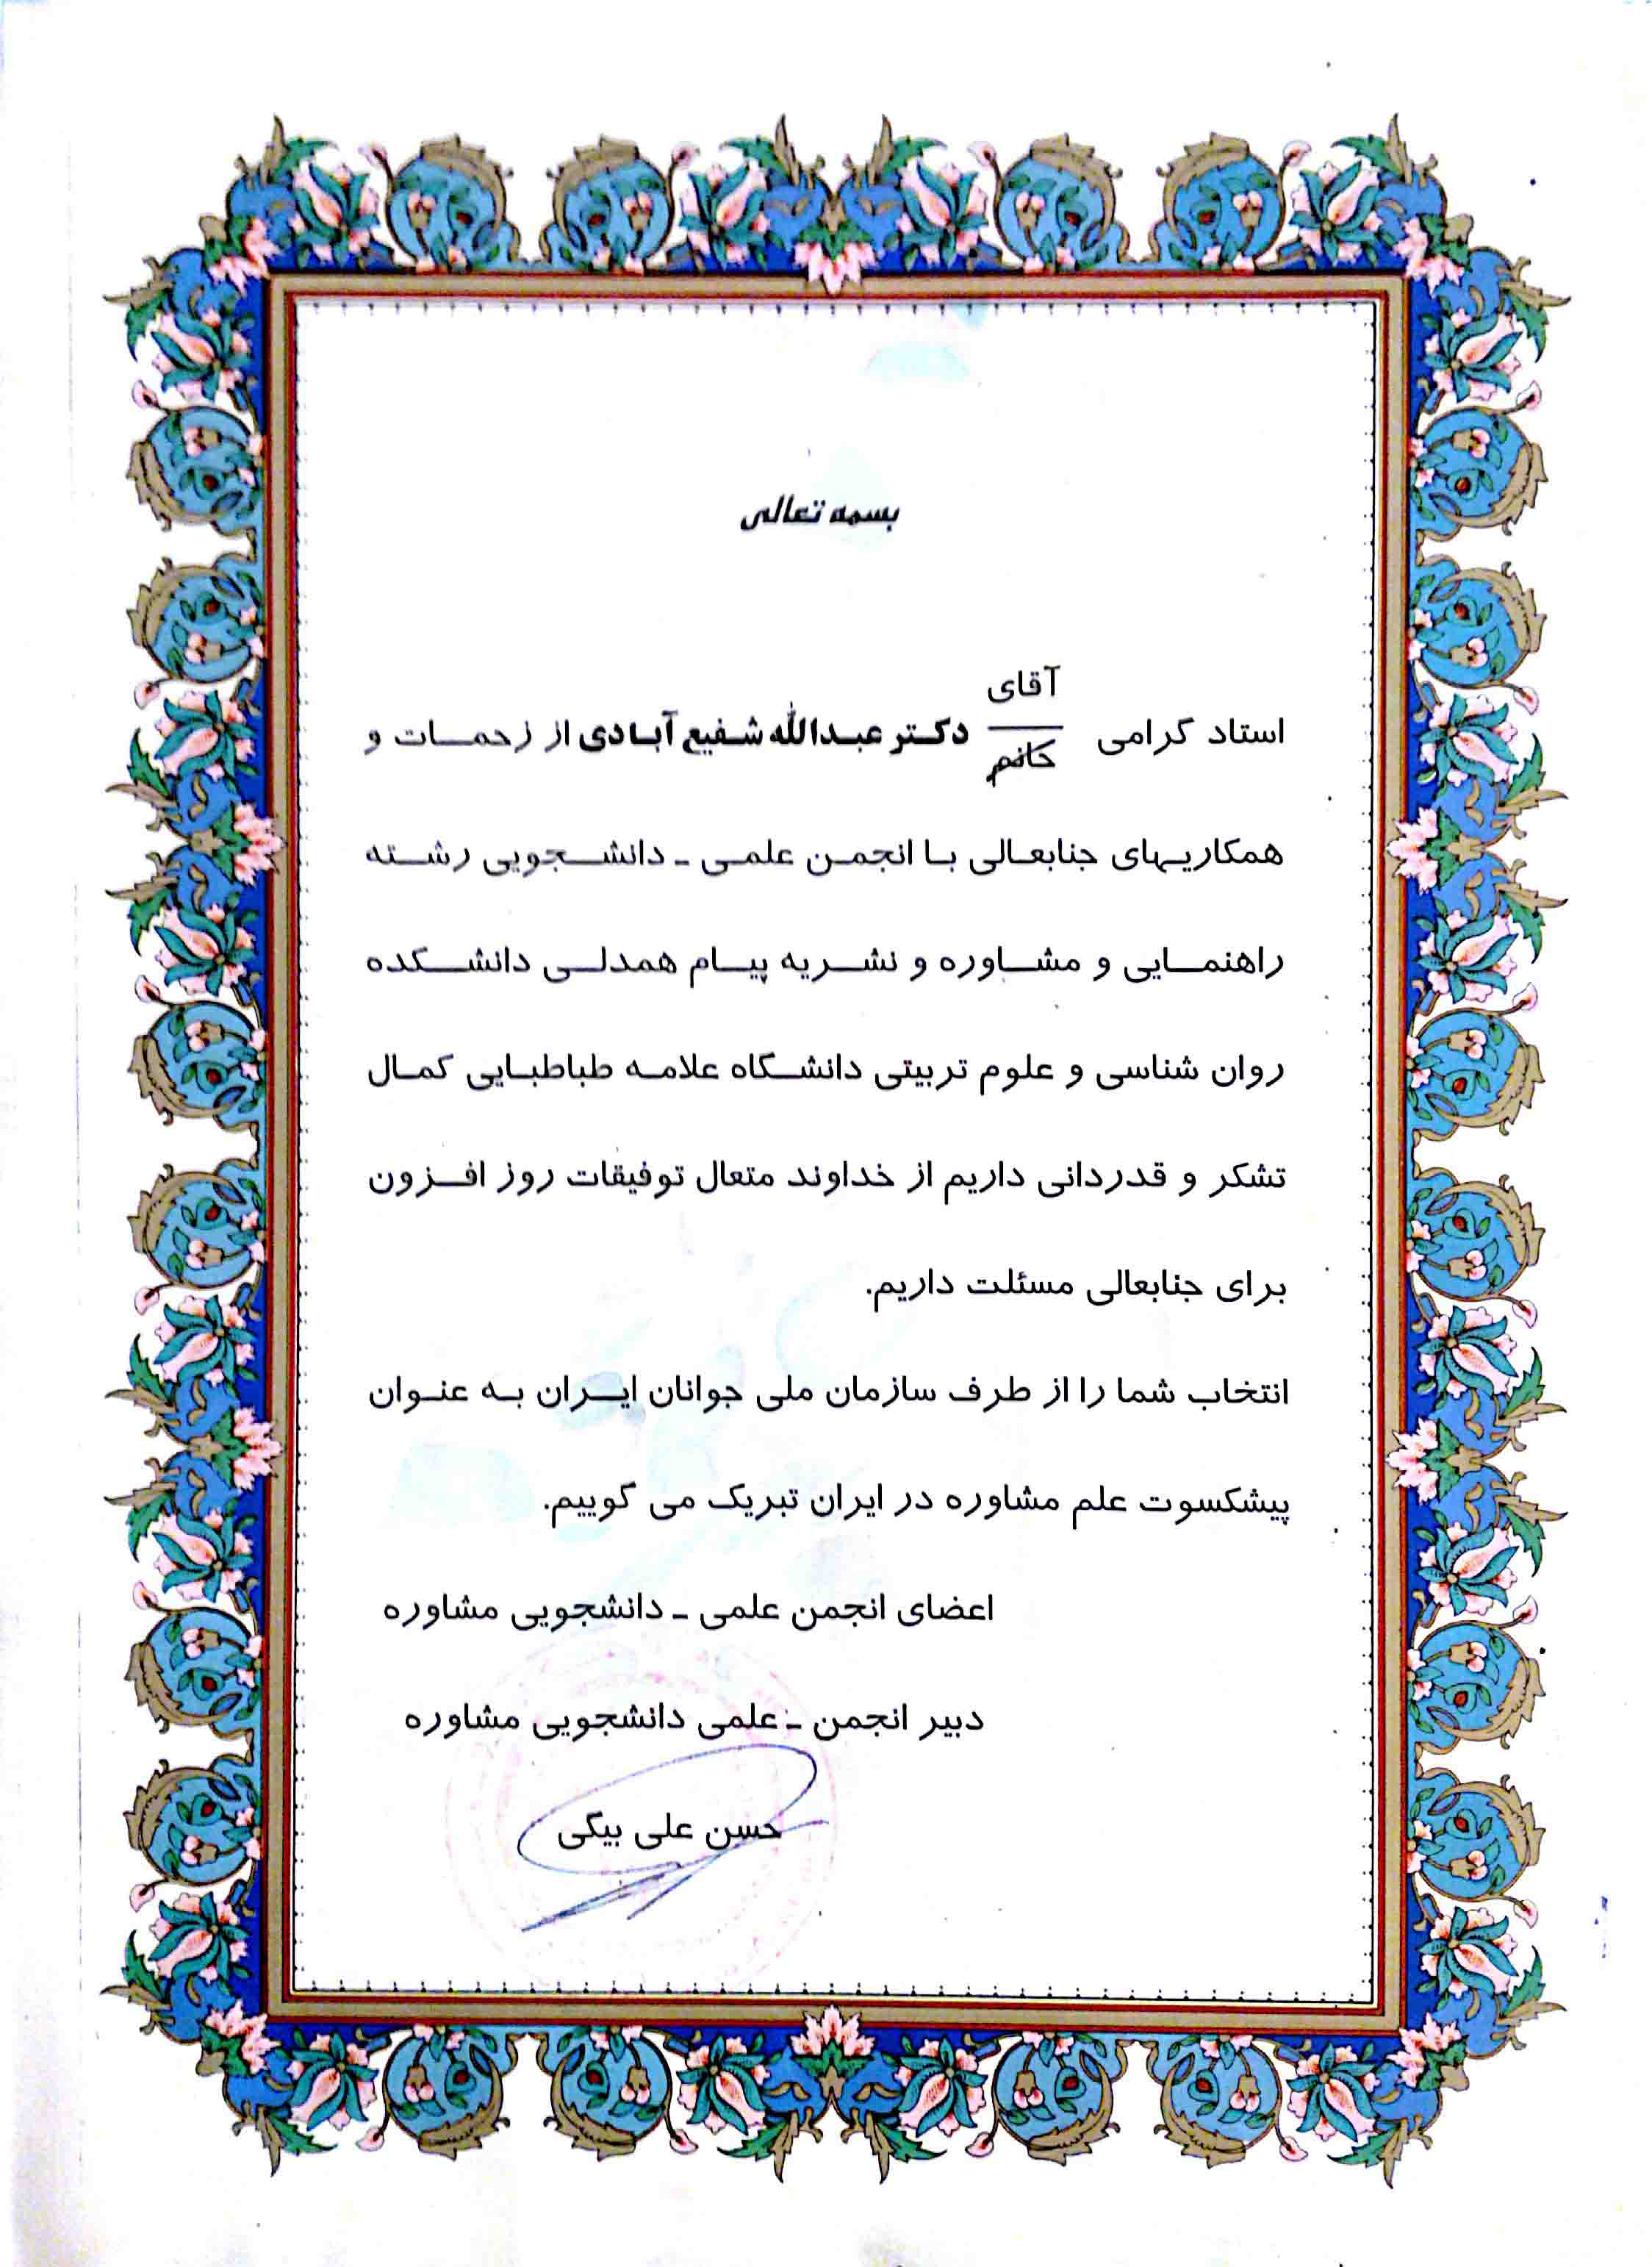 بسمه تعالی
آقای
استاد گرامی دکتر عبدالله شفیع آبادی از زحمات و
خانم
همکاریهای جنابعالی با انجمن علمی ـ دانشجویی رشته
راهنمایی و مشاوره و نشریه پیام همدلی دانشکده
روان شناسی و علوم تربیتی دانشگاه علامه طباطبایی کمال
تشکر و قدردانی داریم از خداوند متعال توفیقات روز افزون
برای جنابعالی مسئلت داریم.
انتخاب شما را از طرف سازمان ملی جوانان ایران به عنوان
پیشکسوت علم مشاوره در ایران تبریک می گوییم.
اعضای انجمن علمی ـ دانشجویی مشاوره
دبیر انجمن ـ علمی دانشجویی مشاوره
حسن علی بیگی